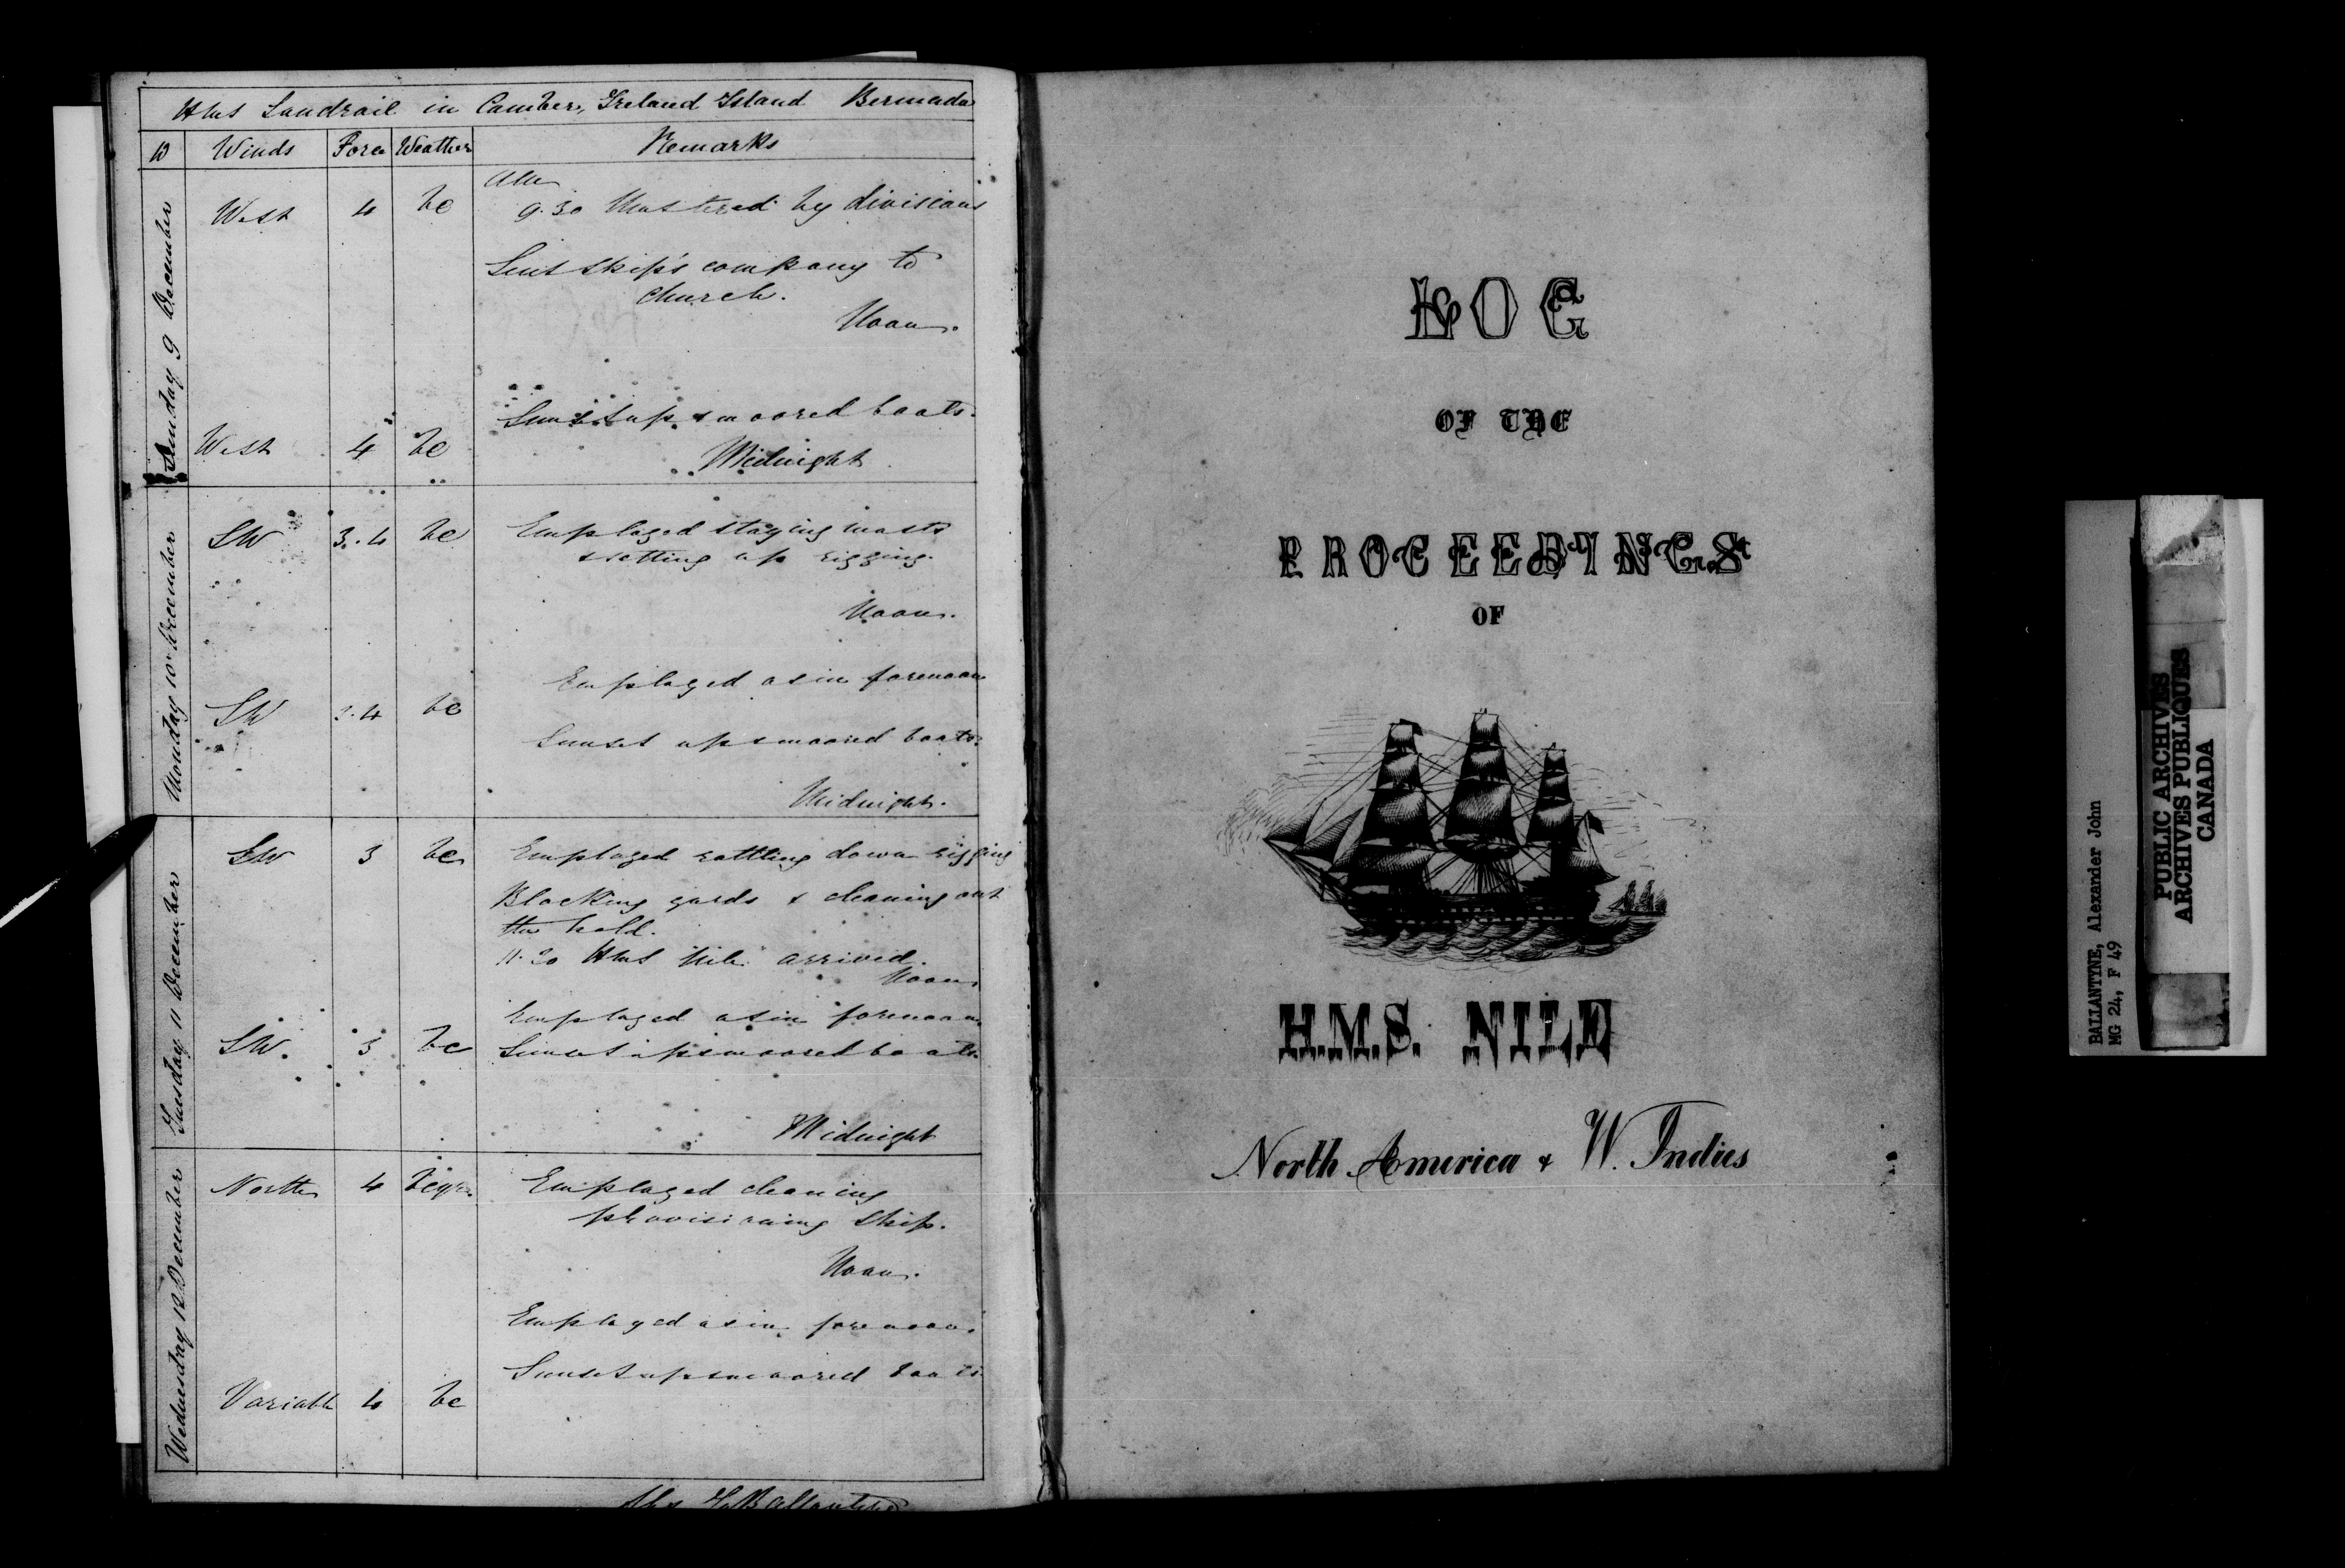 HMS Landrail in Camber, Ireland Island Bermuda
D Winds Force Weather Remarks
Sunday 9 December
AM
West 4 bc 9.30 Mustered by divisions
Sent ship's company to
church.
Noon.
Sunset up & moored boats.
West 4 bc Midnight
Monday 10 December
SW 3.4 bc Employed staying masts
& setting up rigging.
Noon.
Employed as in forenoon
SW 3.4 bc
Sunset up & moored boats.
Midnight.
Tuesday 11 December
SW 3 bc Employed rattling down rigging
Blacking yards & cleaning out
the hold.
11.30 HMS Nile arrived.
Noon
Employed as in forenoon
SW. 3 bc Sunset up & moored boats.
Midnight
Wednesday 12 December
North 4 Employed cleaning
provisioning ship.
Noon.
Employed as in forenoon.
Sunset up & moored boats
Variable 4 bc
Ballantyne
LOG
OF THE
PROCEEDINGS
OF
H.M.S. NILE
North America & W. Indies
BALLANTYNE, Alexander John
MG 24, F 49
PUBLIC ARCHIVES
ARCHIVES PUBLIQUES
CANADA